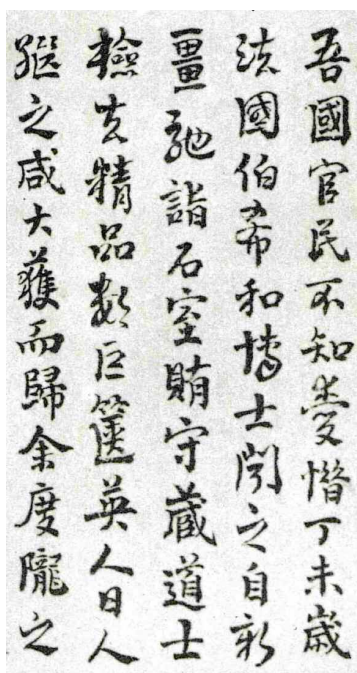 吾國官民不知愛惜丁未歲
法國伯希和博士聞之自新
畺馳詣石室賄守藏道士
檢去精品數巨篋英人日人
繼之咸大獲而歸余度隴之